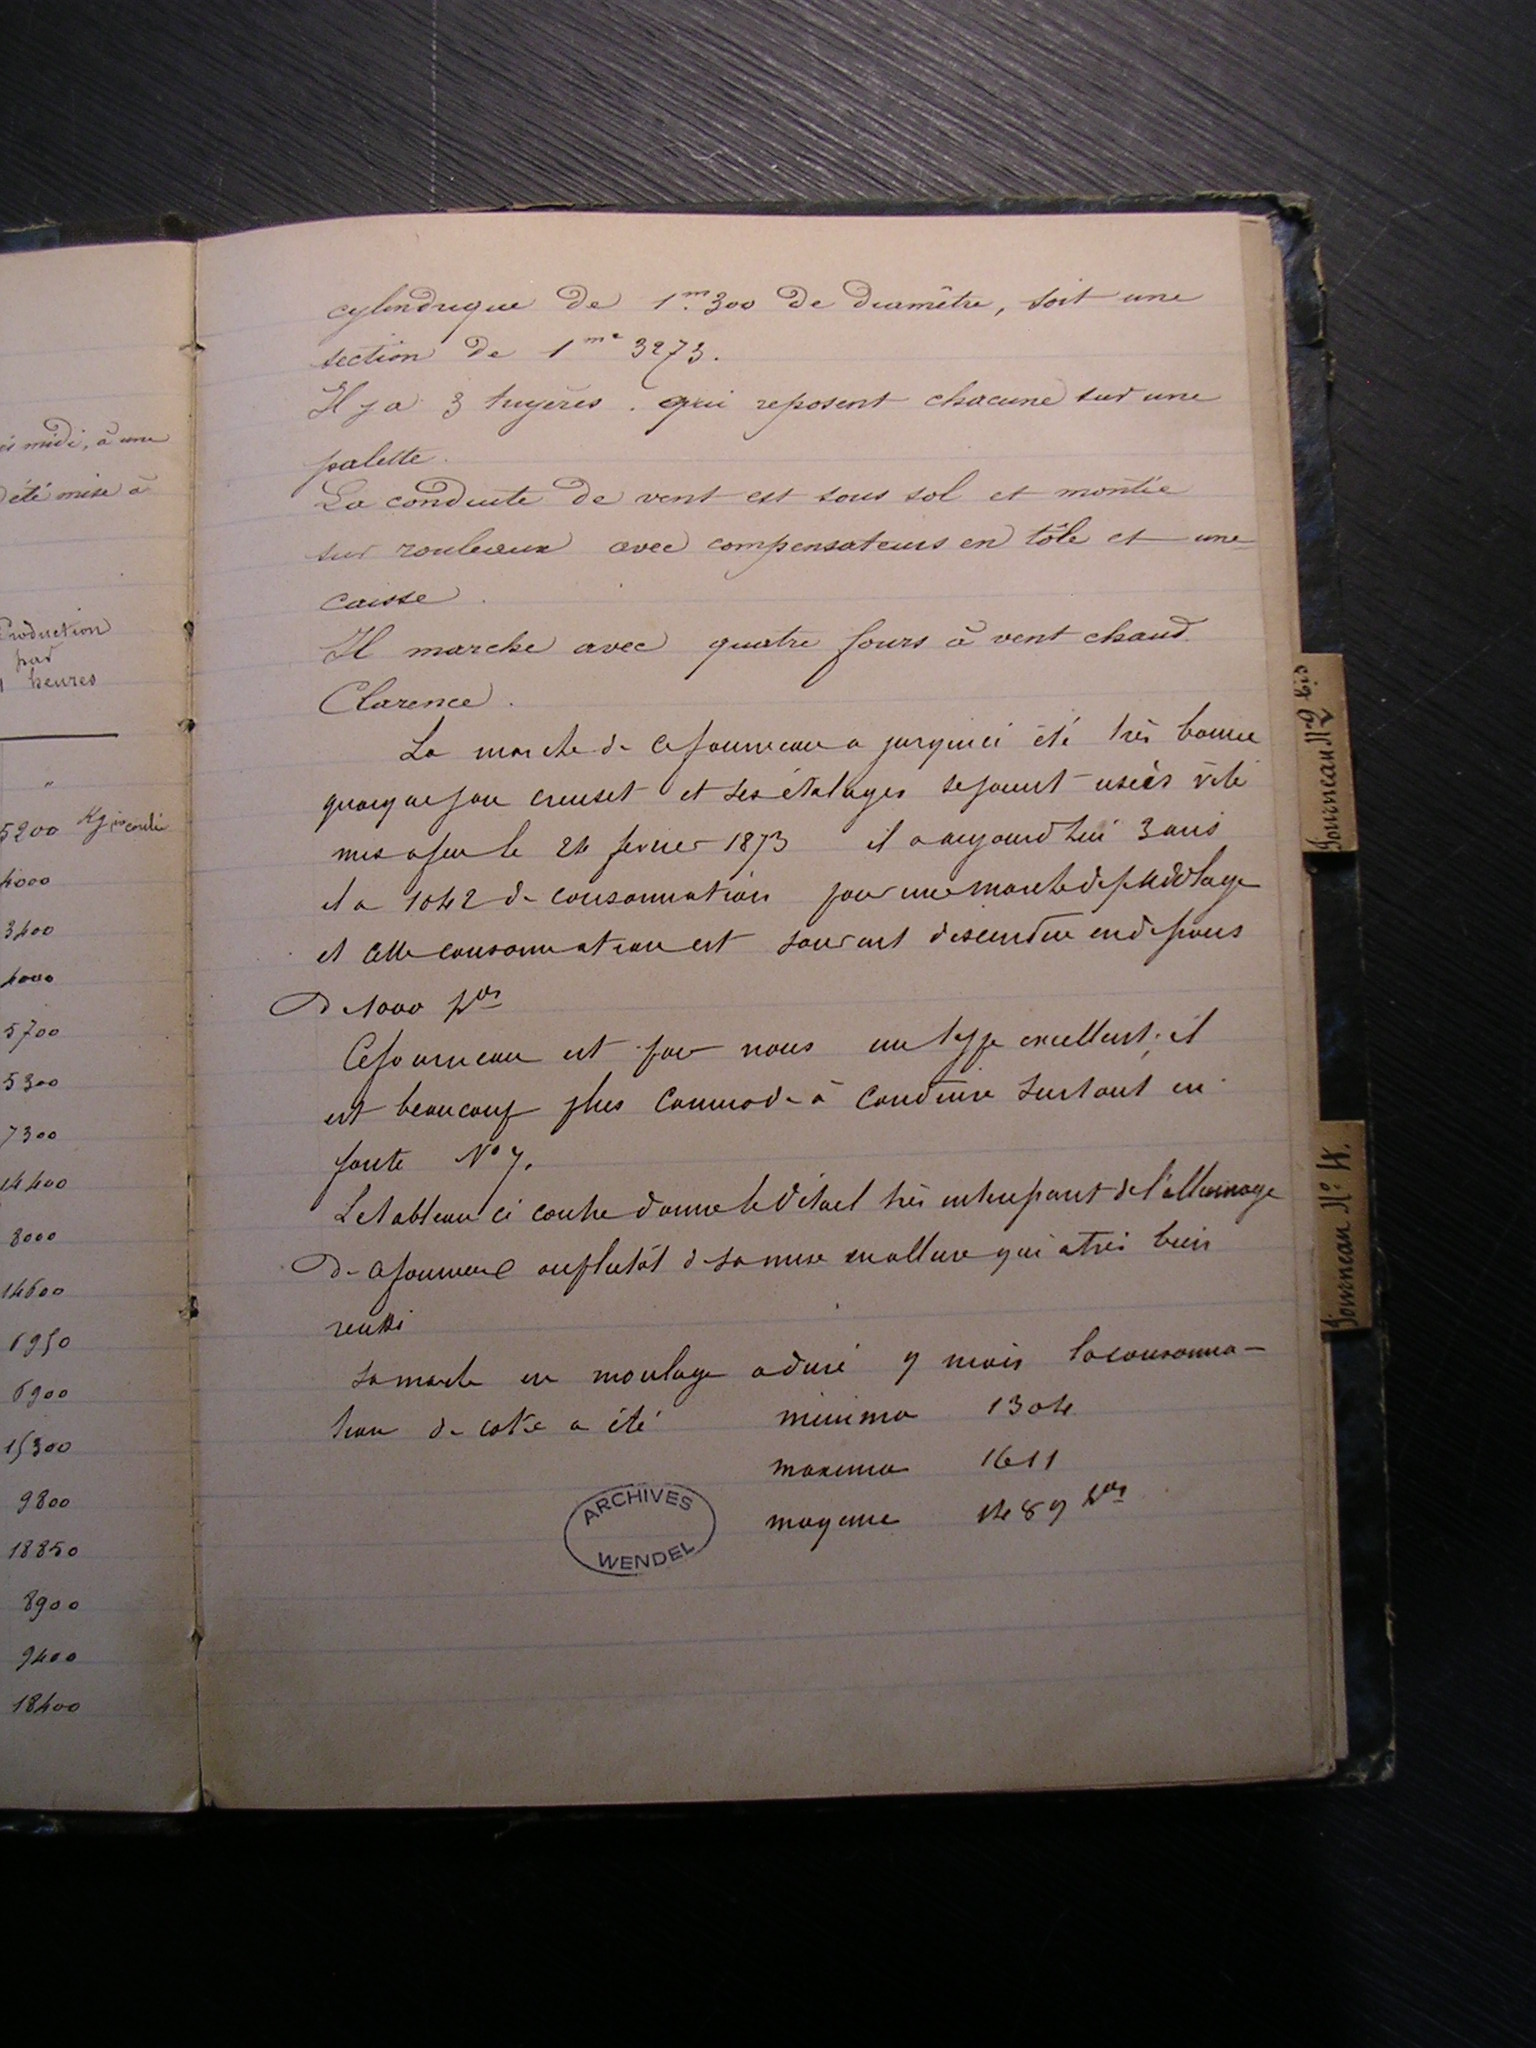 is midi, à une
été mise à
Production
par
heures
"
5200 Kg
4000
3400
4000
5700
5300
7300
14400
8000
14600
6950
6900
15300
9800
18850
8900
9400
18400
cylindrique de 1m.300 de diamêtre, soit une
section de 1m² 3273.
Il y a 3 tuyères. qui reposent chacune sur une
palette.
La conduite de vent est sous sol et montée
sur rouleaux avec compensateurs en tôle et une
caisse.
Il marche avec quatre fours à vent chaud.
Clarence.
La marche de ce fourneau a jusqu'ici été très bonne
quoique son creuset et ses étalages se soient usés vite
mis a feu le 24 fevrier 1873 il a aujourd'hui 3 ans
et a 1042 de consommation pour une marche de puddlage
et cette consommation est souvent descendue en dessous
de 1000 kos
Ce fourneau est pour nous un type excellent; il
est beaucoup plus commode à conduire surtout en
fonte No 7.
Le tableau ci contre donne le détail très interessant de l'allumage
de ce fourneau ou plutôt de sa mise en allure qui a très bien
reussi
sa marche en moulage a duré 9 mois la consomma-
tion de coke a été minima 1304
maxima 1611
moyenne 1489 kos
ARCHIVES
WENDEL
Fourneau No 2 bis
Fourneau No 4.